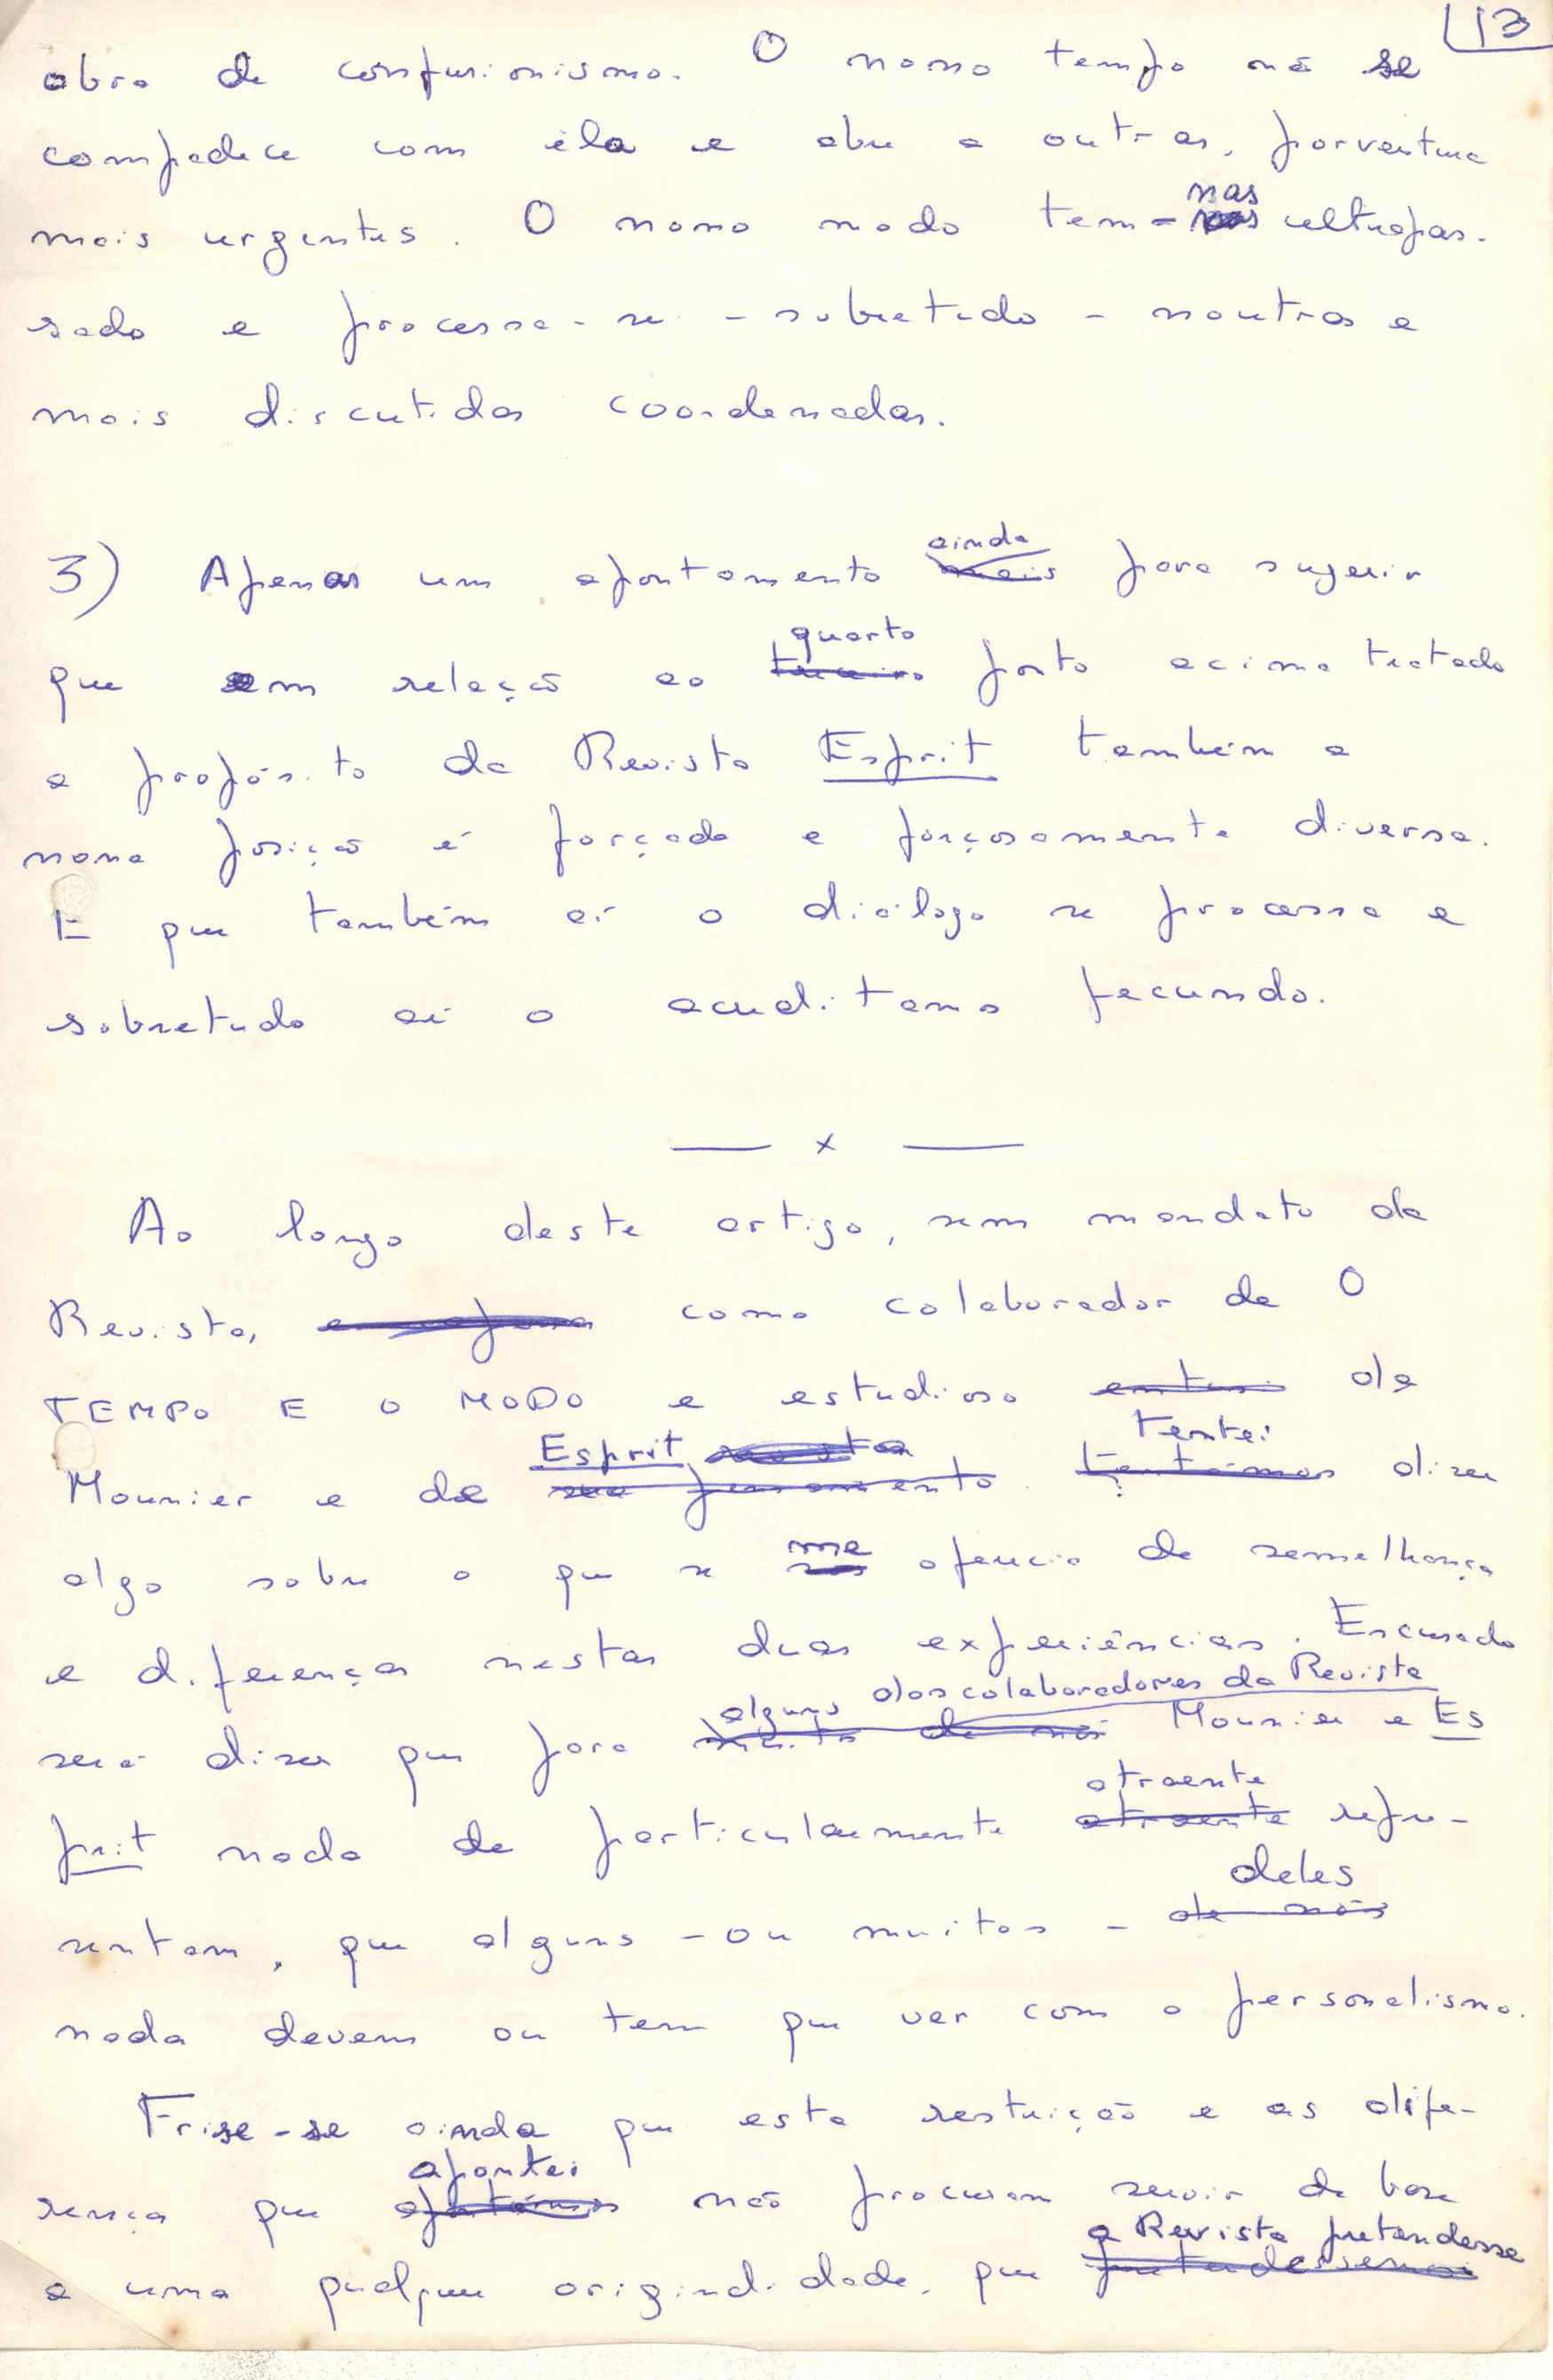 13
obra de confusionismo. O nosso tempo não se
compadece com ela e abre a outras, porventura
mais urgentes. O nosso modo tem-nas ultrapas-
sado e processa-se - sobretudo - noutras e
mais discutidas coordenadas.
3) Apenas um apontamento ainda para sugerir
que em relação ao quarto ponto acima tratado
a propósito da Revista Esprit também a
nossa posição é forçada e forçosamente diversa.
E que também aí o diálogo se processa e
sobretudo aí o acreditamos fecundo.
— x —
Ao longo deste artigo, sem mandato da
Revista, como colaborador de O
TEMPO E O MODO e estudioso de
Mounier e de Esprit, tentei dizer
algo sobre o que se me oferecia de semelhança
e diferenças nestas duas experiências. Escusado
será dizer que para alguns dos colaboradores da Revista Mounier e Es
prit nada de particularmente atraente repre-
sentam, que alguns - ou muitos - deles
nada devem ou tem que ver com o personalismo.
Frise-se ainda que esta restrição e as dife-
rença que apontei não procuram servir de base
a uma qualquer originalidade, que a Revista pretendesse